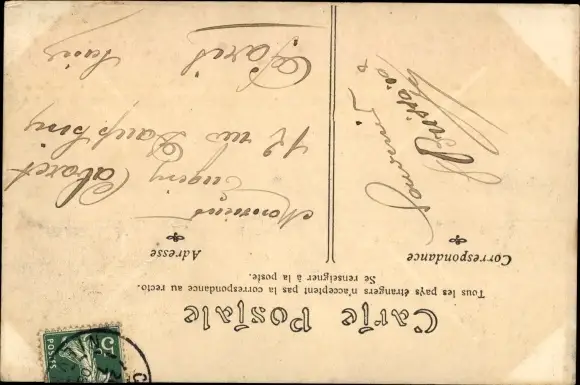 Carte Postale
Tous les pays étrangers n'acceptent pas la correspondance au recto.
Se renseigner à la poste.
Correspondance
Adresse
Souvenir
Monsieur
Eugène Cabaret
12 rue
Paris
5c
POSTES